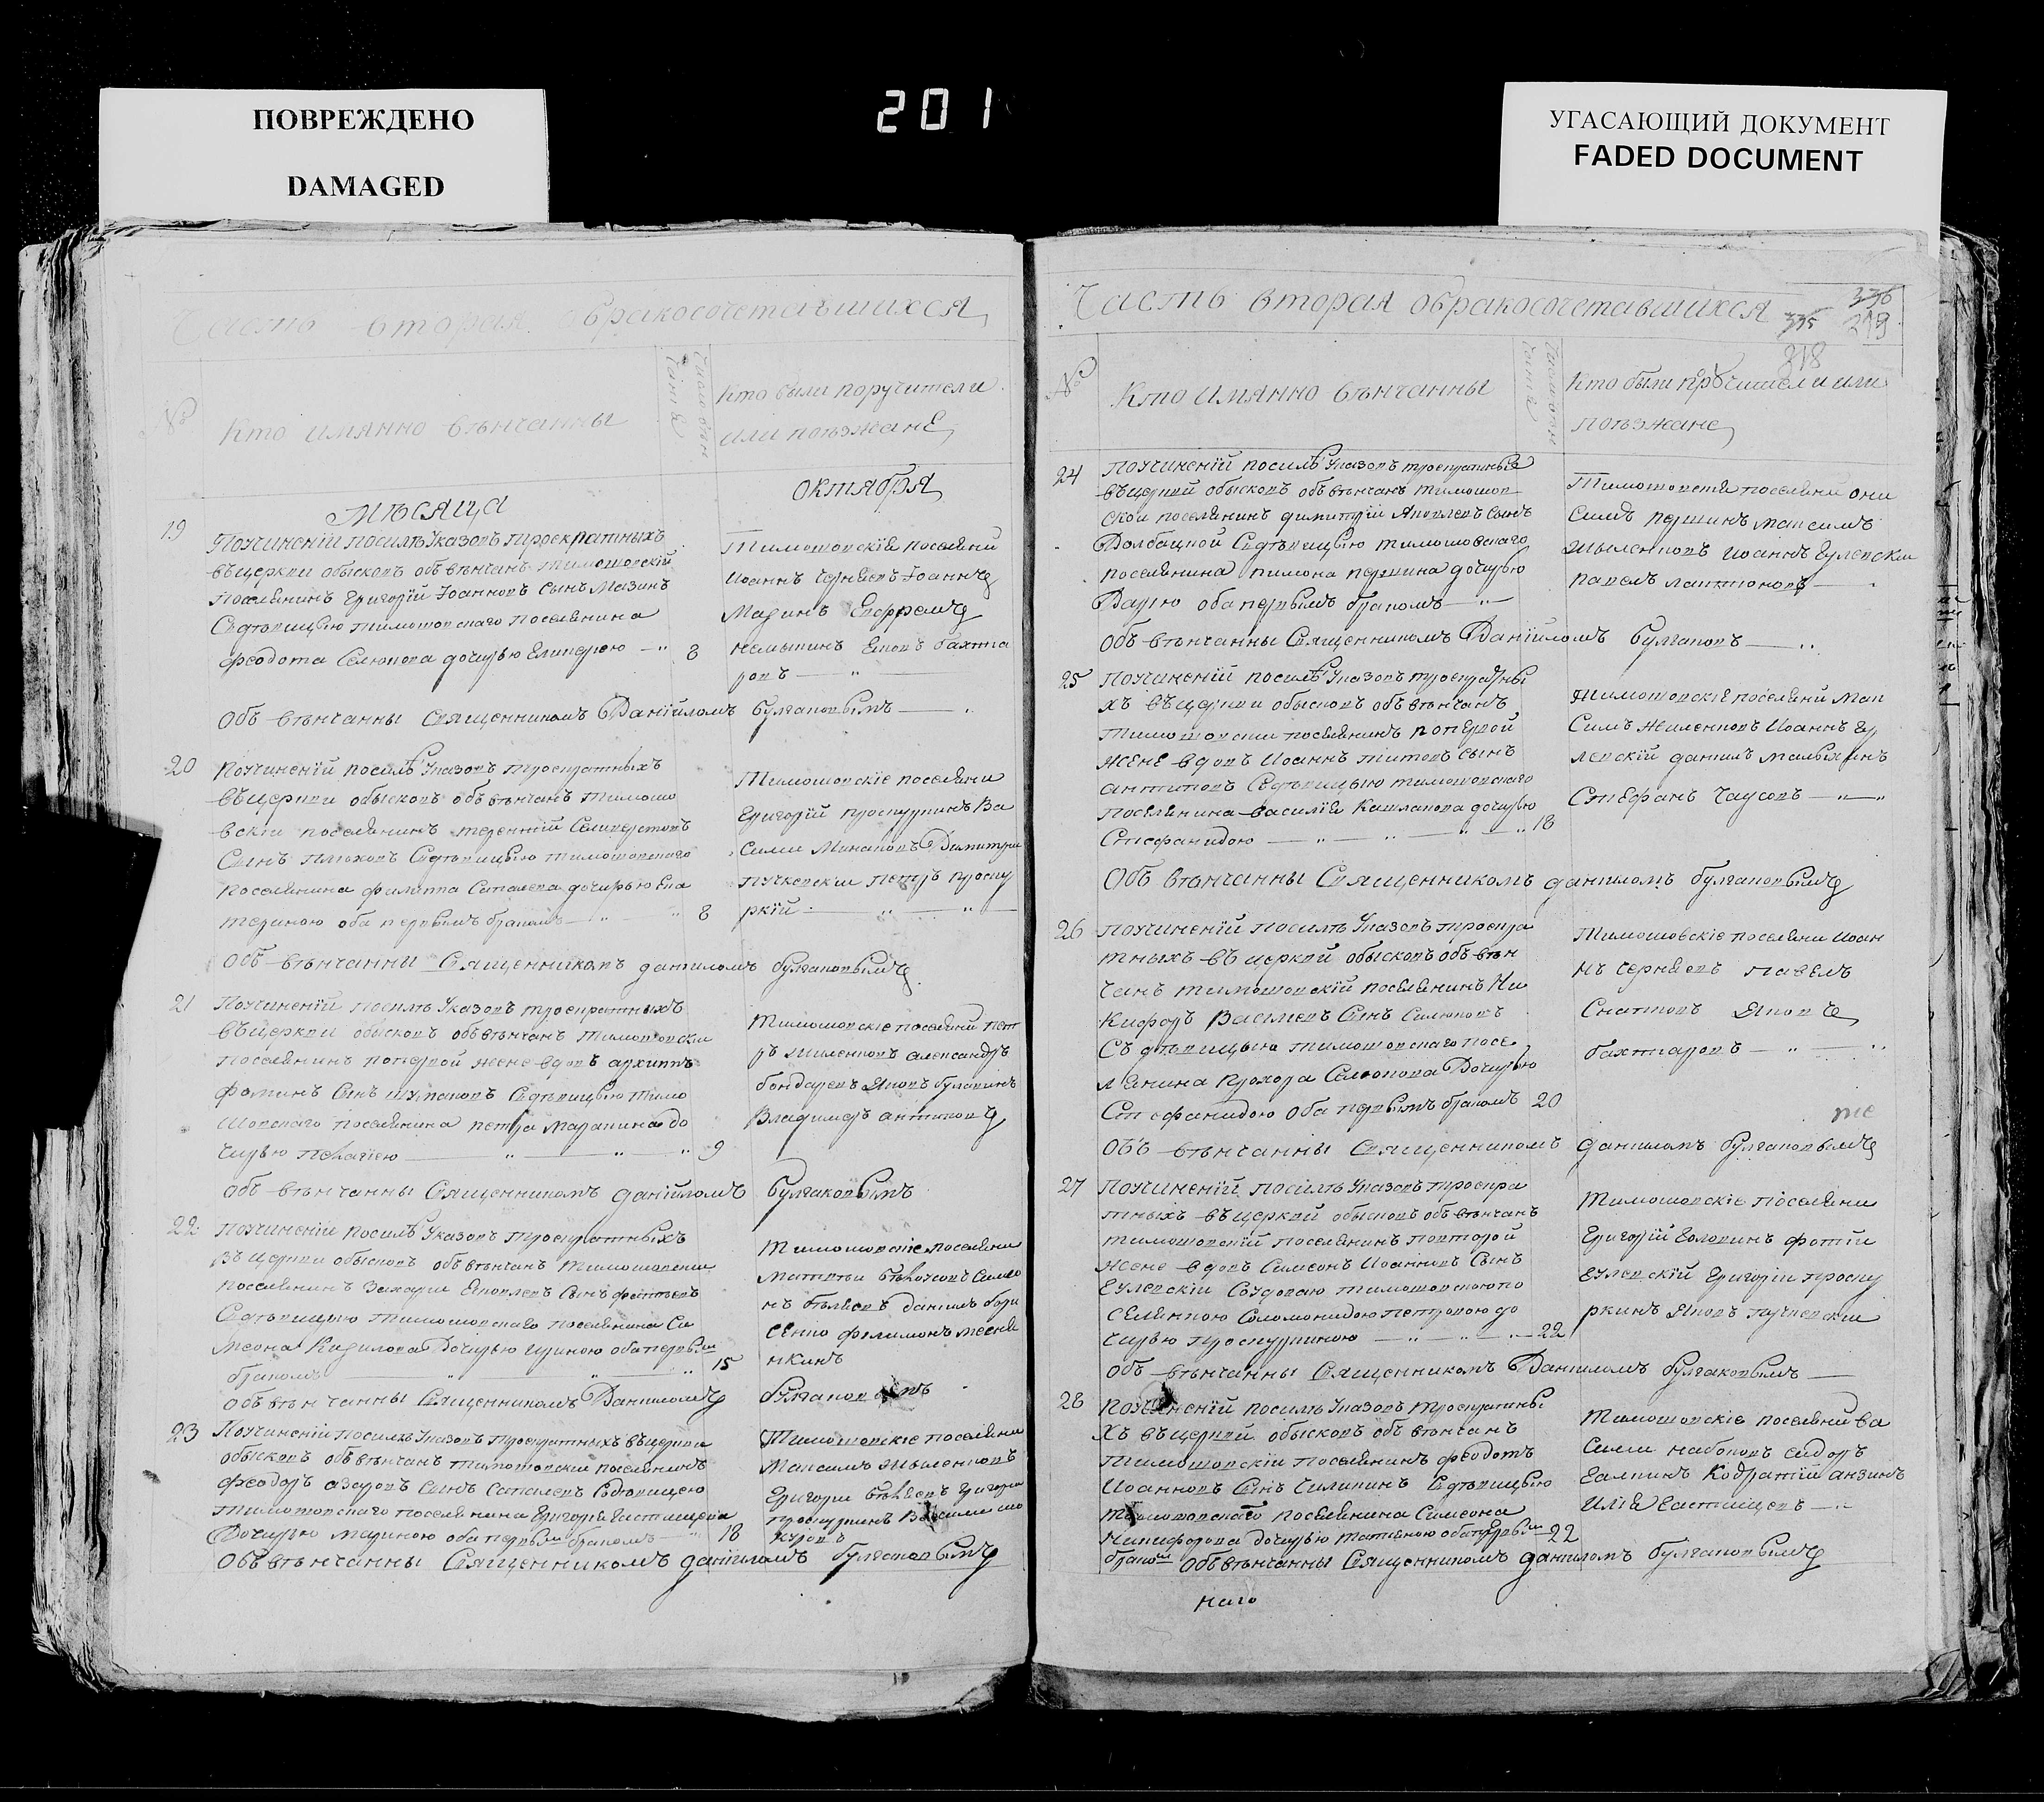 ПОВРЕЖДЕНО
DAMAGED
201
УГАСАЮЩИЙ ДОКУМЕНТ
FADED DOCUMENT
Часть вторая обракосочетавшихся
№
Кто имянно вѣнчанны
Кто были поручители
или поѣзжанѣ
мѣсяца
октября
19
По учиненiй посилѣ Указовъ троекратныхъ
въ церкви обысковъ обвѣнчанъ Тимошовскiй
поселянинъ Григорiй Iоанновъ сынъ Мазинъ
Съ дѣвицыю тимошовскаго поселянина
феодота Селюкова дочирью Гликерею 8
Тимошовскiя поселяни
Иоаннъ Черняевъ Iоаннъ
Мазинъ Ефремъ
Яковъ бахтиа
ровъ
Объвѣнчанны священникомъ Данiйломъ Булгаковымъ
20
По учиненiй посилѣ Указовъ троекратныхъ
въ церкви обысковъ обвѣнчанъ Тимошо
вскiи поселянинъ терентiй Селиверстовъ
сынъ Съ дѣвицыю тимошовскаго
поселянина филиппа Сапалева дочирью Ека
териною оба первымъ бракомъ 8
Тимошовскiе поселяни
Григорiй проскурнинъ Ва
силии Минаковъ Димитри
пучковскiи петръ проску
ркiй
Объ вѣнчанны Священникомъ даниломъ булгаковымъ
21
По учиненiй посилѣ Указовъ троекратныхъ
въ церкви обысковъ обвѣнчанъ Тимошовски
поселянинъ попервой жене вдовъ архипъ
фоминъ сынъ шумаковъ Съ дѣвицыю тимо
шовскаго поселянина петра Маракина до
чирью пелагiею 9
Тимошовскiе поселяни пет
ръ миленковъ александръ
бондаревъ Яковъ булавинъ
Владимеръ антиповъ
Объ вѣнчанны Священникомъ данiйломъ булгаковымъ
22
По учиненiи посилѣ Указовъ троекратныхъ
Въ церкви обысковъ обвѣнчанъ тимошовскии
поселянинъ Захарии Яковлевъ сынъ
Съ дѣвицыю Тимошовскаго поселянина Си
меона Кирилова Дочирью ириною оба первы
бракомъ 15
Тимошовскiе поселяни
Матвѣи бѣлоусовъ Симео
нъ бѣляевъ данилъ бори
сенко филимонъ мясня
нкинъ
Объвѣнчанны Священникомъ Даниломъ булгаковымъ
23
По учиненiи посилѣ Указовъ троекратныхъ въ церкви
обысковъ обвѣнчанъ тимошовскии поселянинъ
феодоръ азаровъ сынъ Сапалевъ Съ дѣвицею
тимошовскаго поселянина Григория Гастищева
Дочирью Мариною оба первы бракомъ 18
Тимошовскiе поселяни
Максимъ Мыленковъ
Григори бѣляевъ Григори
проскурнинъ Василии шо
куровъ
Объвѣнчанны Священникомъ данiйломъ булгаковымъ
Часть вторая обракосочетавшихся
336
335
219
318
№
Кто имянно вѣнчанны
Кто были поручители или
поѣзжане
24
По учиненiй посилѣ Указовъ троекратные
въ церкви обысковъ объвѣнчанъ тимошов
ской поселянинъ димитрiй Яковлевъ сынъ
Долбацкой Съ дѣвицыю тимошовскаго
поселянина пимона першина дочирью
Дарию оба первымъ бракомъ
Тимошовския поселяни они
симъ першинъ максимъ
мыленковъ иоаннъ гулевски
павелъ лактионовъ
Объ вѣнчанны Священникомъ Данiйломъ Булгаковъ
25
По учиненiй посилѣ Указовъ троекратны
хъ въ церкви обысковъ обвѣнчанъ
Тимошовски поселянинъ попервой
жене вдовъ Иоаннъ титовъ сынъ
антиповъ Съ дѣвицыю тимошовскаго
поселянина василiя Кашлакова дочирью
Стефанидою 18
Тимошовскiя поселяни Мак
симъ миленковъ Иоаннъ гу
левскiй данилъ малыхинъ
Стефанъ Чаусовъ
Объ вѣнчанны Священникомъ даниломъ булгаковымъ
26
По учиненiй посилѣ Указовъ троекра
тныхъ въ церкви обысковъ обвѣн
чанъ тимошовскiй поселянинъ Ни
кифоръ Василевъ сынъ Силюковъ
Съ дѣвицыю тимошовскаго посе
лянина прохора Селюкова Дочирью
Стефанидою оба первымъ бракомъ 20
Тимошовскiе поселяни Иоан
нъ черняевъ павелъ
Снатковъ Яковъ
бахтиаровъ
Объ вѣнчанны Священникомъ даниломъ булгаковымъ
27
По учиненiй посилѣ Указовъ троекра
тныхъ въ церкви обысковъ обвѣнчанъ
тимошовскiй поселянинъ повторой
жене вдовъ Симеонъ Иоанновъ сынъ
Гулевскiи Со вдовою тимошовскою по
селянкою Соломонидою петровою до
чирью проскурниною 22
Тимошовскiе поселяни
Григорiй Головинъ фотiи
Гулевскiй Григорiи проску
ркинъ Яковъ пучковскии
Объ вѣнчанны Священникомъ Даниломъ булгаковымъ
28
По учиненiй посилѣ Указовъ троекратны
хъ въ церкви обысковъ обвѣнчанъ
тимошовскiй поселянинъ феодотъ
Иоанновъ сынъ Чиликинъ Съ дѣвицыю
тимошовскаго поселянина Симеона
Никифорова дочирью татияною оба первы 22
бракомъ
Тимошовскiе поселяни ва
силии набоковъ сидоръ
галкинъ Кодратiй анзинъ
Илiя Гастищевъ
Объвѣнчанны Священникомъ даниломъ булгаковымъ
наго